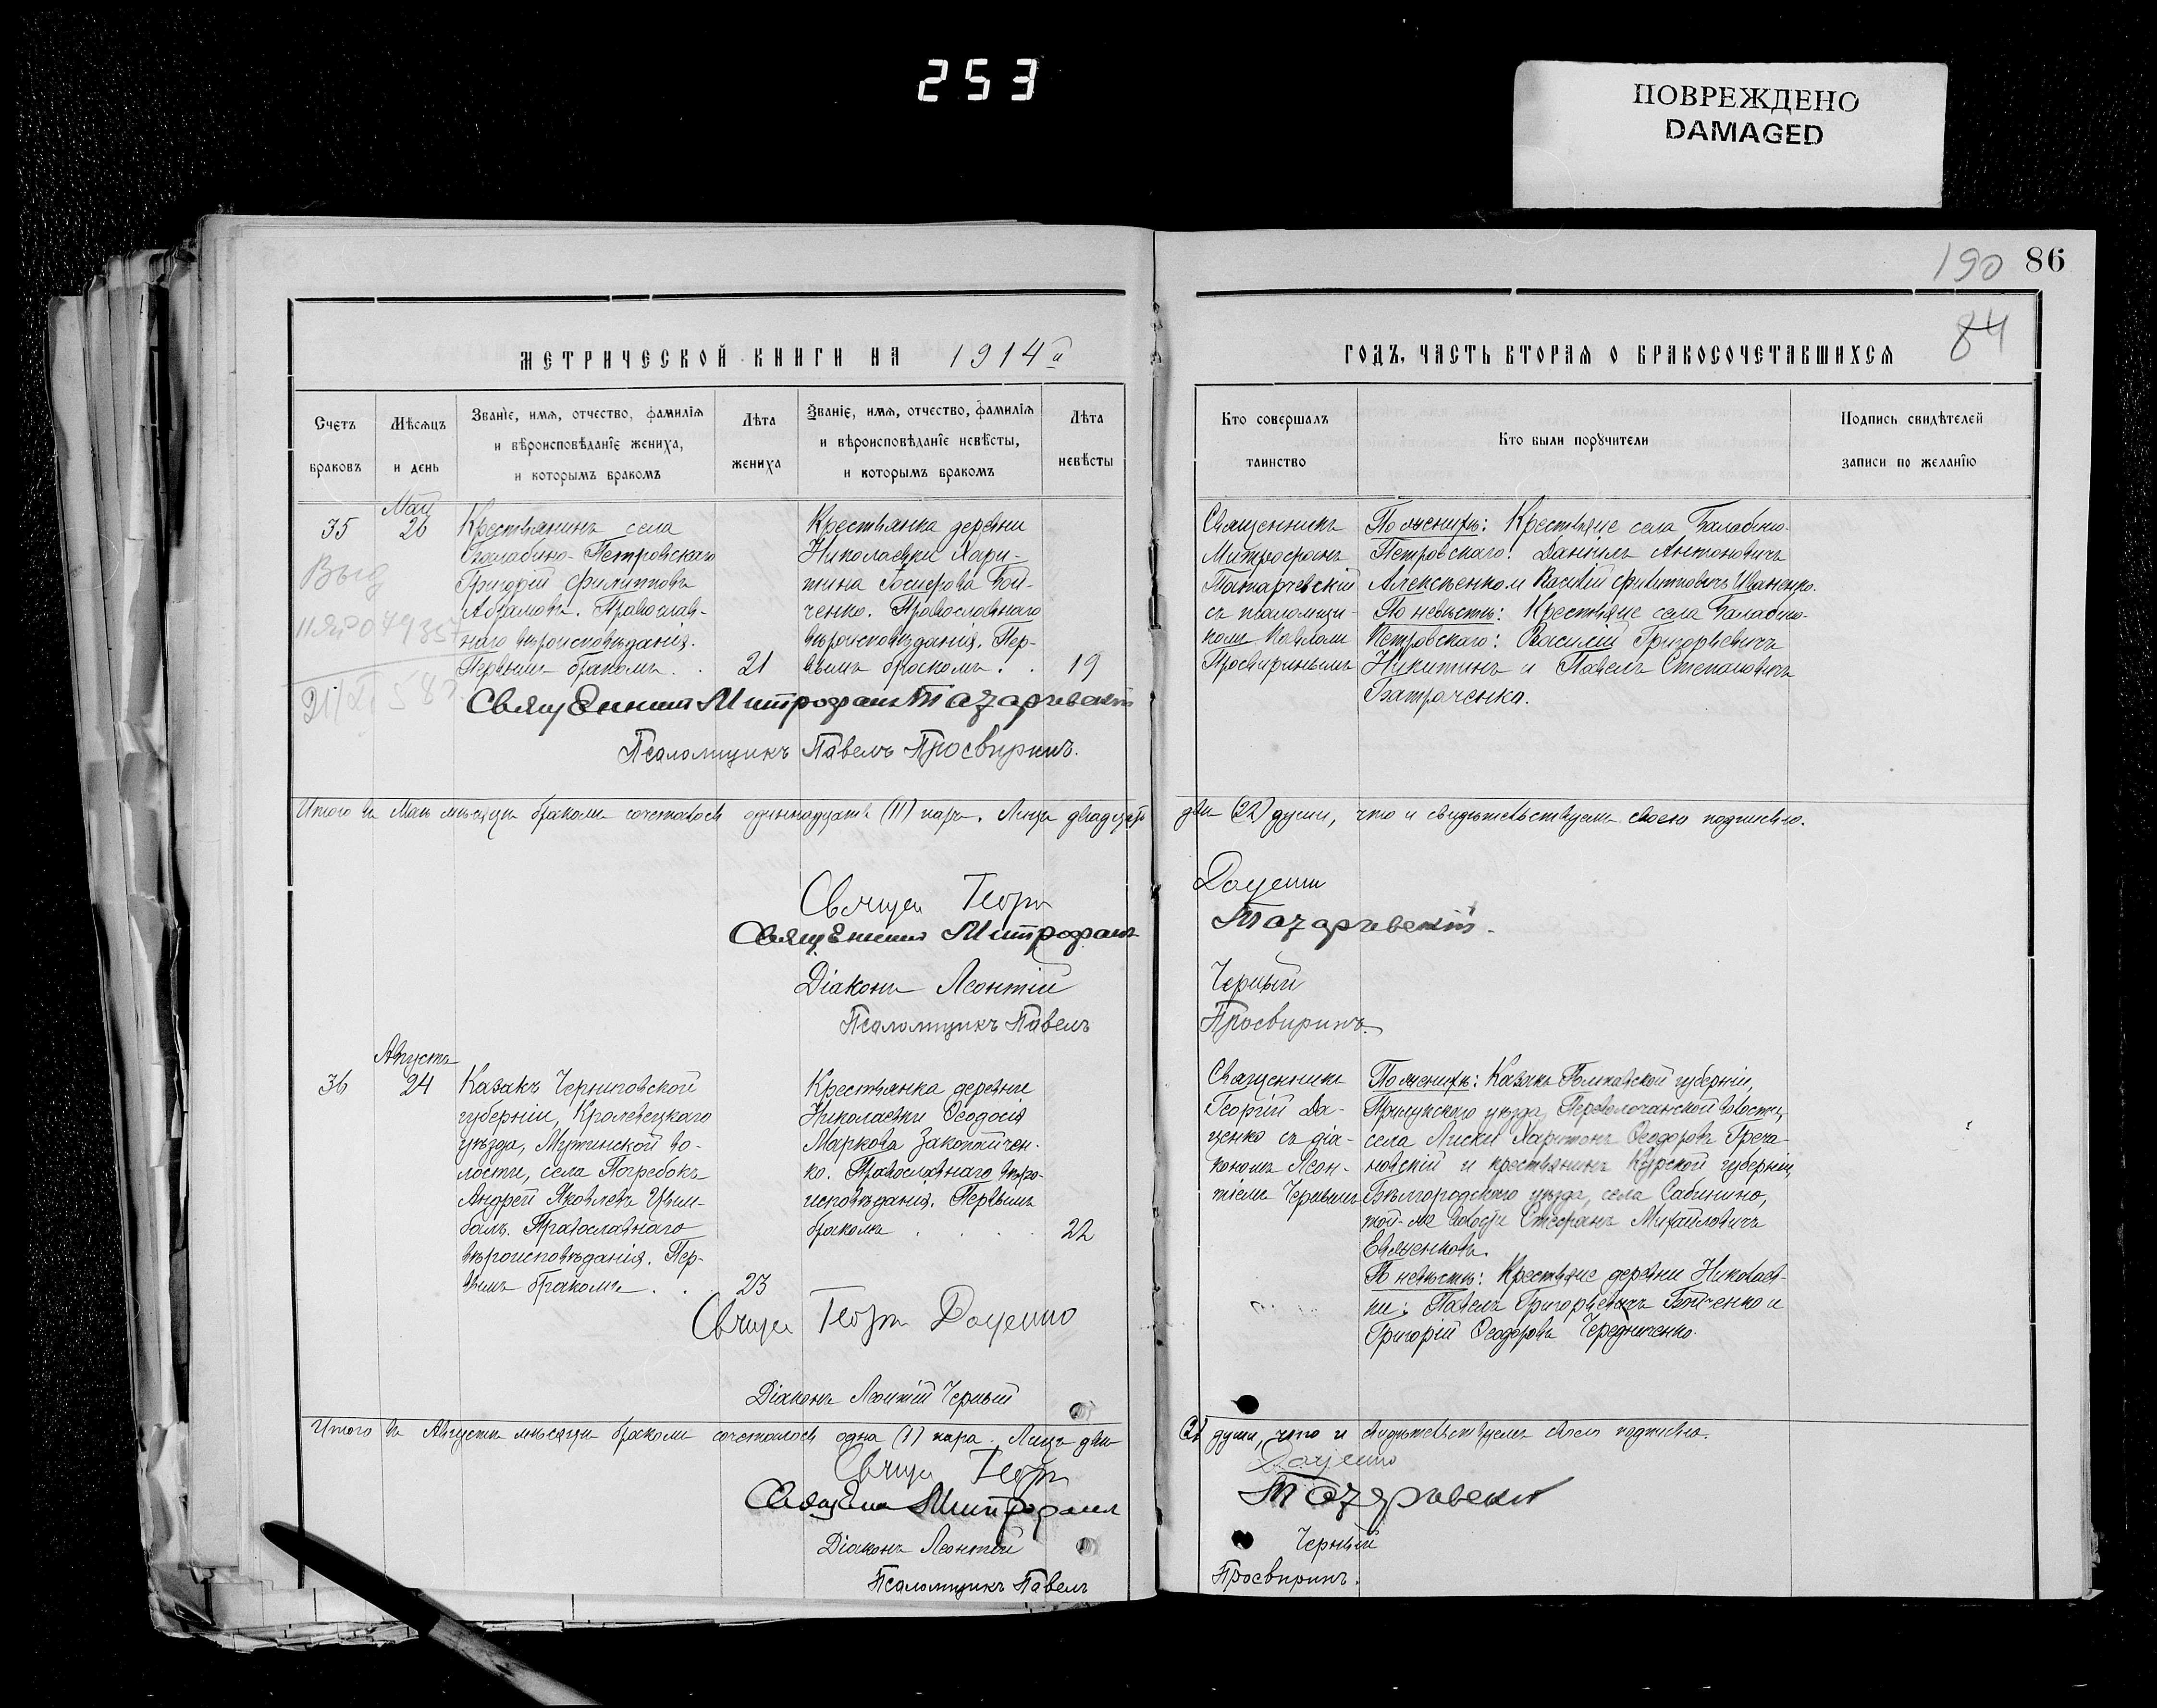 253
ПОВРЕЖДЕНО
DAMAGED
190 86
84
МЕТРИЧЕСКОЙ КНИГИ НА 1914й
ГОДЪ, ЧАСТЬ ВТОРАЯ О БРАКОСОЧЕТАВШИХСЯ
Счетъ
браковъ
Мѣсяцъ
и день
Званіе, имя, отчество, фамилія
и вѣроисповѣданіе жениха,
и которымъ бракомъ
Лѣта
жениха
Званіе, имя, отчество, фамилія
и вѣроисповѣданіе невѣсты,
и которымъ бракомъ
Лѣта
невѣсты
Кто совершалъ
таинство
Кто были поручители
Подпись свидѣтелей
записи по желанію
35
Май
26
Крестьянинъ села
Балабино-Петровскаго
Григорій Филипповъ
Абрамовъ. Православ-
наго вѣроисповѣданія.
Первымъ бракомъ.
21
Крестьянка деревни
Николаевки Хари-
тина Бой-
ченко. Православнаго
вѣроисповѣданія. Пер-
вымъ бракомъ.
19
Выд
Священникъ
Митрофанъ
Татаревскій
съ псаломщи-
комъ Павломъ
Просвиринымъ
По женихѣ: Крестьяне села Балабино-
Петровскаго: Даніилъ Антоновичъ
Алексѣенко и Василій Филипповичъ Иваненко.
По невѣстѣ: Крестьяне села Балабино-
Петровскаго: Василій Григорьевичъ
Никитинъ и Павелъ Степановичъ
Батраченко.
Священникъ Митрофанъ Тазаревскій
Псаломщикъ Павелъ Просвиринъ.
Итого въ Маѣ мѣсяцѣ бракомъ сочеталось одиннадцать (11) паръ. Лицъ двадцать
двѣ (22) души, что и свидѣтельствуемъ своею подписью.
Священ Георг Доценко
Священникъ Митрофанъ Тазаревскій.
Діаконъ Леонтій Черный
Псаломщикъ Павелъ Просвиринъ.
36
Августъ
24
Казакъ Черниговской
губерніи, Кролевецкаго
уѣзда, Мутинской во-
лости, села Погребокъ
Андрей Яковлевъ Цим-
балъ. Православнаго
вѣроисповѣданія. Пер-
вымъ бракомъ.
23
Крестьянка деревни
Николаевки Ѳеодосія
Маркова
ко. Православнаго вѣро-
исповѣданія. Первымъ
бракомъ
22
Священникъ
Георгій Да-
ценко съ діа-
кономъ Леон-
тіемъ Чернымъ
По женихѣ: Казакъ Полтавской губерніи,
Прилукскаго уѣзда, Переволочанской волости,
села Лиски Харитонъ Ѳеодоровъ Греча-
новскій и крестьянинъ Курской губерніи,
Бѣлгородскаго уѣзда, села Сабинино,
той-же волости Стефанъ Михайловичъ
По невѣстѣ: Крестьяне деревни Николаев-
ки: Павелъ Григорьевичъ Бойченко и
Григорій Ѳеодоровъ Чередниченко.
Свящ Георг Доценко
Діаконъ Леонтій Черный
Итого въ Августѣ мѣсяцѣ бракомъ сочеталось одна (1) пара. Лицъ двѣ
(2) души, что и свидѣтельствуемъ своею подписью.
Свящ Георг Доценко
Митрофанъ
Діаконъ Леонтій Черный
Псаломщикъ Павелъ Просвиринъ.